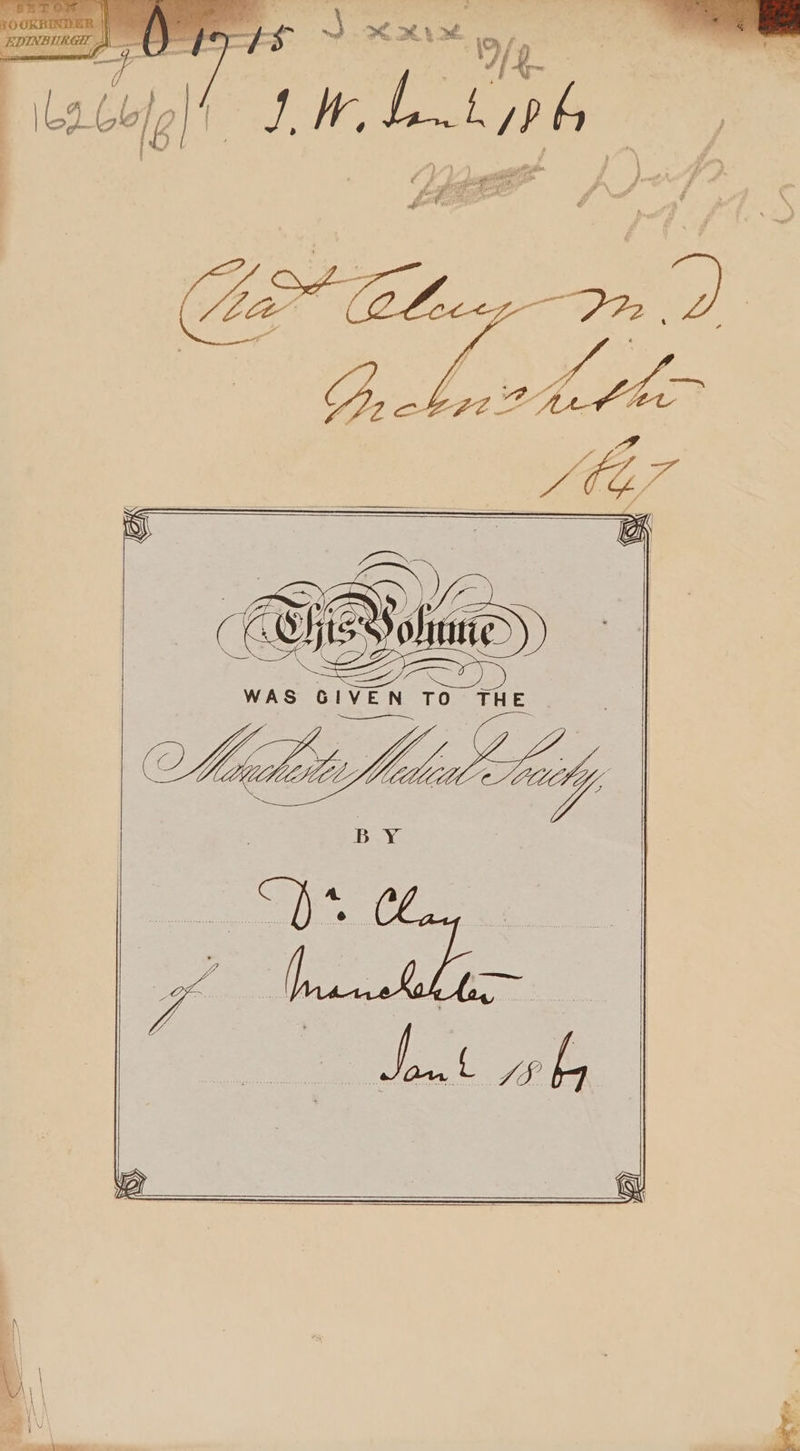 SETON
BOOKBINDER
EDINBURGH
J xxix
19/f
16266/8/1 J. W. Jany 1867
M.M.S
Chas Clay M.D.
Manchester
1847
This Volume
WAS GIVEN TO THE
Manchester Medical Society,
BY
Dr. Clay
of Manchester
Jany 1867